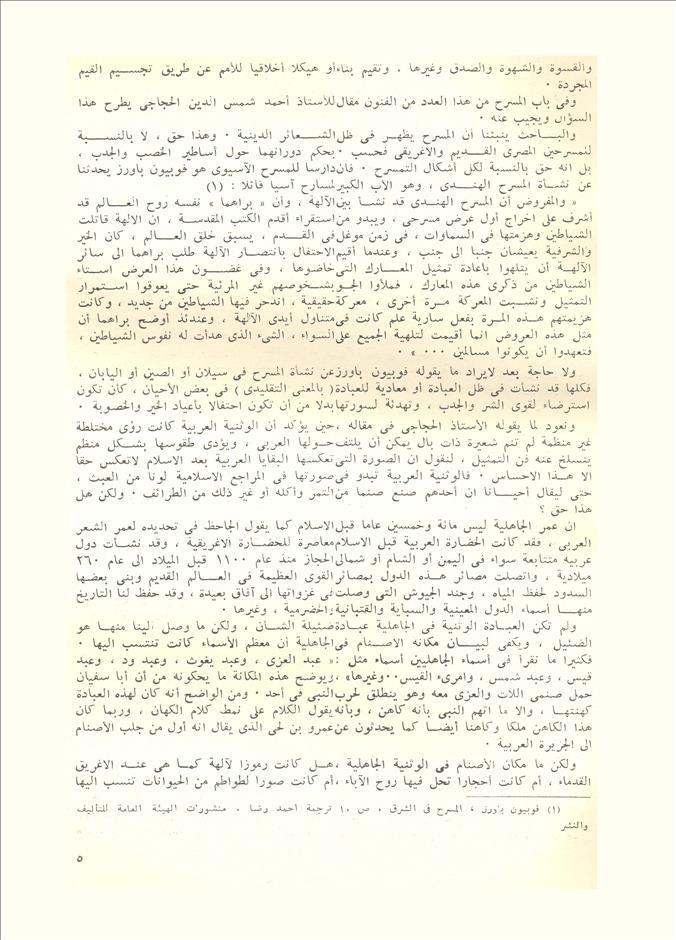 والقسوة والشهوة والصدق وغيرها . وتقيم بناء أو هيكلا أخلاقيا للأمم عن طريق تجسيم القيم
المجردة .
وفى باب المسرح من هذا العدد من الفنون مقال للأستاذ أحمد شمس الدين الحجاجى يطرح هذا
السؤال ويجيب عنه .
والباحث ينبئنا أن المسرح يظهر فى ظل الشعائر الدينية . وهذا حق ، لا بالنسبة
للمسرحين المصرى القديم والاغريقى فحسب . بحكم دورانهما حول أساطير الخصب والجدب ،
بل انه حق بالنسبة لكل أشكال التمسرح . فان دارسا للمسرح الآسيوى هو فوبيون باورز يحدثنا
عن نشأة المسرح الهندى ، وهو الأب الكبير لمسارح آسيا قائلا : (١)
« والمفروض أن المسرح الهندى قد نشأ بين الآلهة ، وأن « براهما » نفسه روح العالم قد
أشرف على اخراج أول عرض مسرحى ، ويبدو من استقراء أقدم الكتب المقدسة ، ان الالهة قاتلت
الشياطين وهزمتها فى السماوات ، فى زمن موغل فى القدم ، يسبق خلق العالم ، كان الخير
والشر فيه يعيشان جنبا الى جنب ، وعندما أقيم الاحتفال بانتصار الآلهة طلب براهما الى سائر
الآلهة أن يتلهوا باعادة تمثيل المعارك التى خاضوها ، وفى غضون هذا العرض استاء
الشياطين من ذكرى هذه المعارك ، فملأوا الجو بشخوصهم غير المرئية حتى يعوقوا استمرار
التمثيل ونشبت المعركة مرة أخرى ، معركة حقيقية ، اندحر فيها الشياطين من جديد ، وكانت
هزيمتهم هذه المرة بفعل سارية علم كانت فى متناول أيدى الآلهة ، وعندئذ أوضح براهما أن
مثل هذه العروض انما أقيمت لتلهية الجميع على السواء ، الشىء الذى هدأت له نفوس الشياطين ،
فتعهدوا أن يكونوا مسالمين ٠٠٠ » .
ولا حاجة بعد لايراد ما يقوله فوبيون باورز عن نشأة المسرح فى سيلان أو الصين أو اليابان ،
فكلها قد نشأت فى ظل العبادة أو معادية للعبادة ( بالمعنى التقليدى ) فى بعض الأحيان ، كأن تكون
استرضاء لقوى الشر والجدب ، وتهدئة لسورتها بدلا من أن تكون احتفالا بأعياد الخير والخصوبة .
ونعود لما يقوله الأستاذ الحجاجى فى مقاله ، حين يؤكد أن الوثنية العربية كانت رؤى مختلطة
غير منظمة لم تنم شعيرة ذات بال يمكن أن يلتف حولها العربى ، ويؤدى طقوسها بشكل منظم
ينسلخ عنه فن التمثيل ، لنقول ان الصورة التى تعكسها البقايا العربية بعد الاسلام لا تعكس حقا
الا هذا الاحساس . فالوثنية العربية تبدو فى صورتها فى المراجع الاسلامية لونا من العبث ،
حتى ليقال أحيانا ان أحدهم صنع صنما من التمر وأكله أو غير ذلك من الطرائف . ولكن هل
هذا حق ؟
ان عمر الجاهلية ليس مائة وخمسين عاما قبل الاسلام كما يقول الجاحظ فى تحديده لعمر الشعر
العربى ، فقد كانت الحضارة العربية قبل الاسلام معاصرة للحضارة الاغريقية ، وقد نشأت دول
عربية متتابعة سواء فى اليمن أو الشام أو شمالى الحجاز منذ عام ١١٠٠ قبل الميلاد الى عام ٢٦٠
ميلادية ، واتصلت مصائر هذه الدول بمصائر القوى العظيمة فى العالم القديم وبنى بعضها
السدود لحفظ المياه ، وجند الجيوش التى وصلت فى غزواتها الى آفاق بعيدة ، وقد حفظ لنا التاريخ
منها أسماء الدول المعينية والسبأية والقتبانية والحضرمية ، وغيرها .
ولم تكن العبادة الوثنية فى الجاهلية عبادة ضئيلة الشأن ، ولكن ما وصل الينا منها هو
الضئيل ، ويكفى لبيان مكانه الاصنام فى الجاهلية أن معظم الأسماء كانت تنتسب اليها .
فكثيرا ما نقرأ فى أسماء الجاهليين أسماء مثل : « عبد العزى ، وعبد يغوث ، وعبد ود ، وعبد
قيس ، وعبد شمس ، وامرىء القيس . . وغيرها» ، ويوضح هذه المكانة ما يحكونه من أن أبا سفيان
حمل صنمى اللات والعزى معه وهو ينطلق لحرب النبى فى أحد . ومن الواضح أنه كان لهذه العبادة
كهنتها ، والا ما اتهم النبى بأنه كاهن ، وبأنه يقول الكلام على نمط كلام الكهان ، وربما كان
هذا الكاهن ملكا وكاهنا أيضا كما يحدثون عن عمرو بن لحى الذى يقال انه أول من جلب الأصنام
الى الجزيرة العربية .
ولكن ما مكان الأصنام فى الوثنية الجاهلية ، هل كانت رموزا لآلهة كما هى عند الاغريق
القدماء ، أم كانت أحجارا تحل فيها روح الآباء ، أم كانت صورا لطواطم من الحيوانات تنسب اليها
(١) فوبيون باورز ، المسرح فى الشرق . ص ١٠ ترجمة احمد رضا . منشورات الهيئة العامة للتأليف
والنشر
٥